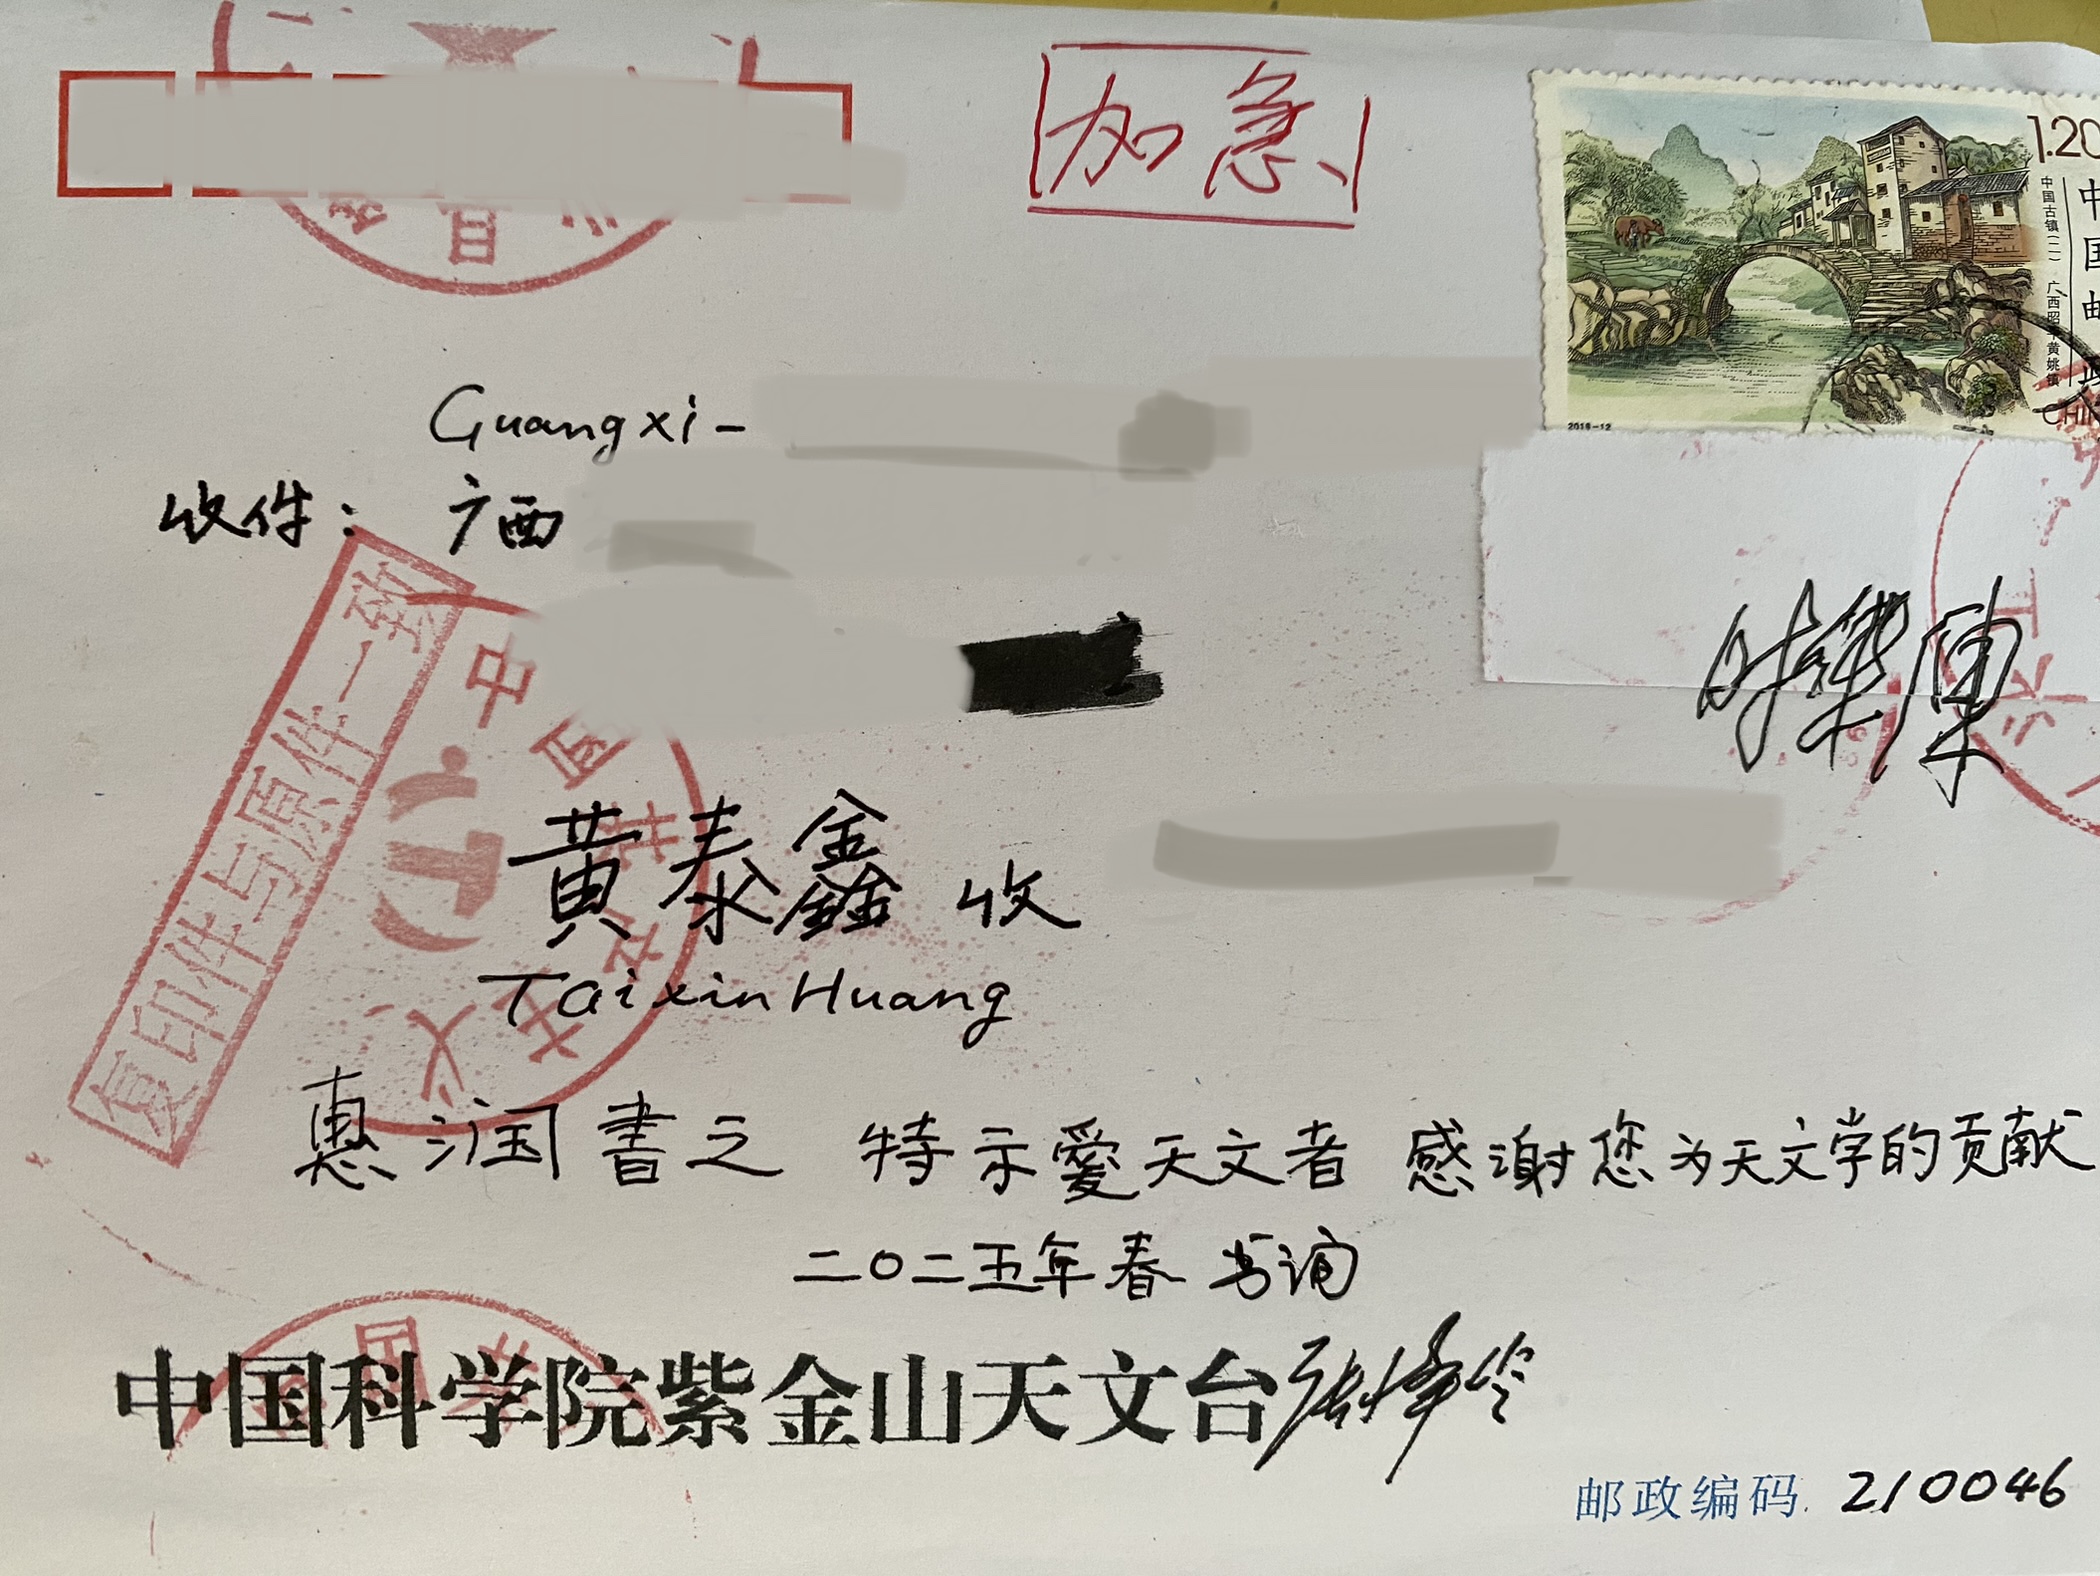 加急
1.20
中国邮政
中国古镇(二) 广西昭平黄姚镇
CHI
2016-12
Guangxi-
收件: 广西
复印件与原件一致
黄泰鑫 收
Taixin Huang
惠润書之 特示愛天文者 感谢您为天文学的贡献
二〇二五年春 书
中国科学院紫金山天文台
邮政编码 210046